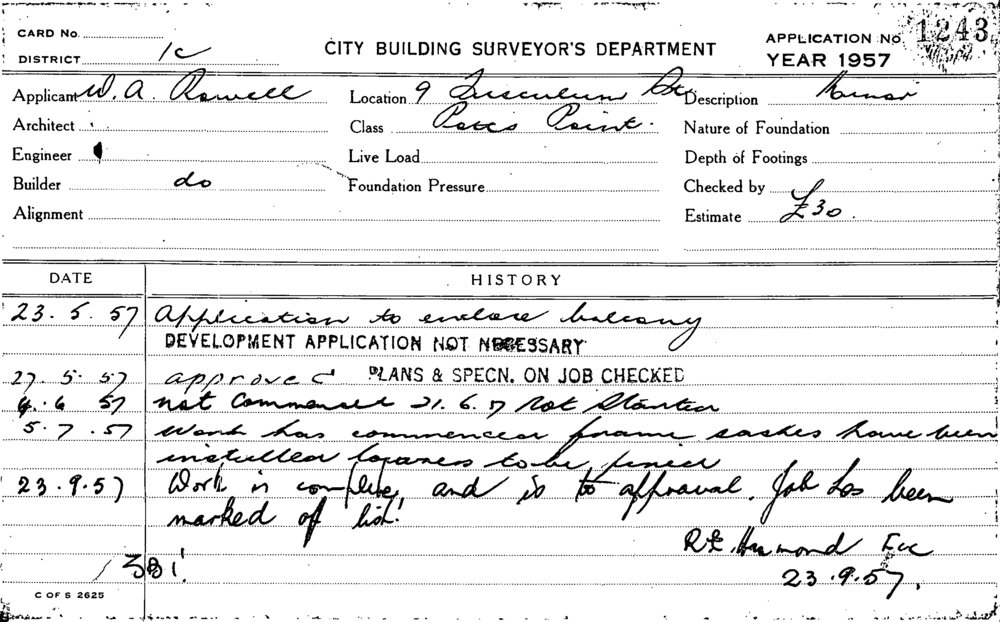 CARD No.
DISTRICT 1c
CITY BUILDING SURVEYOR'S DEPARTMENT
APPLICATION No. 1243
YEAR 1957
Applicant W. A. Rowell
Location 9 Tusculum St
Description Minor
Architect
Class Potts Point.
Nature of Foundation
Engineer
Live Load
Depth of Footings
Builder do
Foundation Pressure
Checked by
Alignment
Estimate £30.
DATE HISTORY
23. 5. 57 Application to enclose balcony
DEVELOPMENT APPLICATION NOT NECESSARY
27. 5. 57 approved PLANS & SPECN. ON JOB CHECKED
4. 6 57 not Commenced 21. 6. 7 Not Started
5. 7. 57 Work has commenced frame sashes have been
installed to be
23. 9. 57 Work is complete, and is to approval. Job has been
marked of list.
R.E. Hammond
23. 9. 57.
C OF S 2625